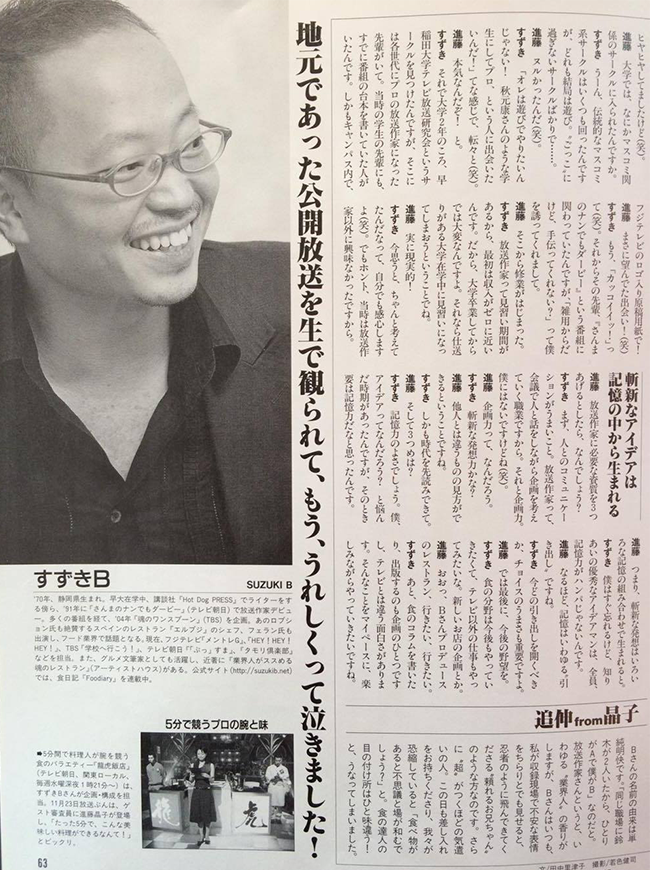 ヒヤヒヤしてましたけど（笑）。
進藤 大学では、なにかマスコミ関
係のサークルに入られたんですか。
すずき うーん、伝統的なマスコミ
系サークルはいくつも回ったんです
が、どれも結局は遊び。〝ごっこ〟に
過ぎないサークルばかりで……。
進藤 ヌルかったんだ（笑）。
すずき 「オレは遊びでやりたいん
じゃない！ 秋元康さんのような学
生にしてプロ、という人に出会いた
いんだ！」てな感じで、転々と（笑）
進藤 本気なんだぞ！ と。
すずき それで大学2年のころ、早
稲田大学テレビ放送研究会というサ
ークルを見つけたんですが、そこに
は各世代にプロの放送作家になった
先輩がいて、当時の学生の先輩にも、
すでに番組の台本を書いていた人が
いたんです。しかもキャンパス内で、
フジテレビのロゴ入り原稿用紙で！
進藤 まさに望んでた出会い！（笑）
すずき もう、「カッコイイッ！」っ
て（笑）。それからその先輩、『さんま
のナンでもダービー』という番組に
関わっていたんですが、「雑用からだ
けど、手伝ってくれない？」って僕
を誘ってくれまして。
進藤 そこから修業がはじまった。
すずき 放送作家って見習い期間が
あるから、最初は収入がゼロに近い
んです。だから、大学卒業してから
では大変なんですよ。それなら仕送
りがある大学在学中に見習いになっ
てしまおうということでね。
進藤 実に現実的！
すずき 今思うと、ちゃんと考えて
たんだなって、自分でも感心します
よ（笑）。でもホント、当時は放送作
家以外に興味なかったですから。
斬新なアイデアは
記憶の中から生まれる
進藤 放送作家に必要な資質を3つ
あげるとしたら、なんでしょう？
すずき まず、人とのコミュニケー
ションがうまいこと。放送作家って、
会議で人と話をしながら企画を考え
ていく職業ですから。それと企画力。
僕にはないですけどね（笑）。
進藤 企画力って、なんだろう。
すずき 斬新な発想力かな？
進藤 他人とは違うものの見方がで
きるということですね。
すずき しかも時代を先読みできて。
進藤 そして3つめは？
すずき 記憶力のよさでしょう。僕、
アイデアってなんだろう？ と悩ん
だ時期があったんですが、そのとき
要は記憶力だなと思ったんです。
進藤 つまり、斬新な発想はいろい
ろな記憶の組み合わせで生まれると。
すずき 僕はすぐ忘れるけど、知り
あいの優秀なアイデアマンは、全員、
記憶力がハンパじゃないんです。
進藤 なるほど、記憶はいわゆる〝引
き出し〟ですね。
すずき 今どの引き出しを開くべき
か、チョイスのうまさも重要ですよ。
進藤 では最後に、今後の野望を。
すずき 食の分野は今後もやってい
きたくて、テレビ以外の仕事もやっ
てみたいな。新しいお店の企画とか。
進藤 おおっ、Bさんプロデュース
のレストラン、行きたい、行きたい。
すずき あと、食のコラムを書いた
り、出版するのも企画のひとつです
し、テレビとは違う面白さがありま
す。そんなことをマイペースに、楽
しみながらやっていきたいですね。
地元であった公開放送を生で観られて、もう、うれしくって泣きました！
すずきB
SUZUKI B
'70年、静岡県生まれ。早大在学中、講談社「Hot Dog PRESS」でライターをす
る傍ら、'91年に「さんまのナンでもダービー」（テレビ朝日）で放送作家デビュ
ー。多くの番組を経て、'04年「魂のワンスプーン」（TBS）を企画。あのロブシ
ョン氏も絶賛するスペインのレストラン「エルブジ」のシェフ、フェラン氏も
出演し、フード業界で話題となる。現在、フジテレビ「メントレG」、「HEY！HEY！
HEY！」、TBS「学校へ行こう！」、テレビ朝日「『ぷっ』すま」、「タモリ倶楽部」
などを担当。また、グルメ文筆家としても活躍し、近著に「業界人がススめる
魂のレストラン」（アーティストハウス）がある。公式サイト（http://suzukib.net）
では、食日記「Foodiary」を連載中。
5分で競うプロの腕と味
■5分間で料理人が腕を競う
食のバラエティー「龍虎飯店」
（テレビ朝日、関東ローカル、
毎週水曜深夜1時21分〜）は、
すずきBさんが企画・構成を担
当。11月23日放送ぶんは、ゲ
スト審査員に進藤晶子が登場
し、「たった5分で、こんな美
味しい料理ができるなんて！」
とビックリ。
龍
虎
追伸from晶子
Bさんの名前の由来は単
純明快です。"同じ職場に鈴
木が2人いたから、ひとり
がAで僕がB"なのだと。
放送作家さんというと、い
わゆる〝業界人〟の香りが
しますが、Bさんはいつも、
私が収録現場で不安な表情
をちらりとでも見せると、
忍者のように飛んできてく
ださる〝頼れるお兄ちゃん〟
のような方なのです。さら
に〝超〟がつくほどの気遣
いの人。この日も差し入れ
をお持ちくださり、我々が
恐縮していると「食べ物が
あると不思議と場が和むで
しょう？」と。食の達人の
目の付け所はひと味違う！
と、うなってしまいました。
文／田中里津子 撮影／若色健司
63